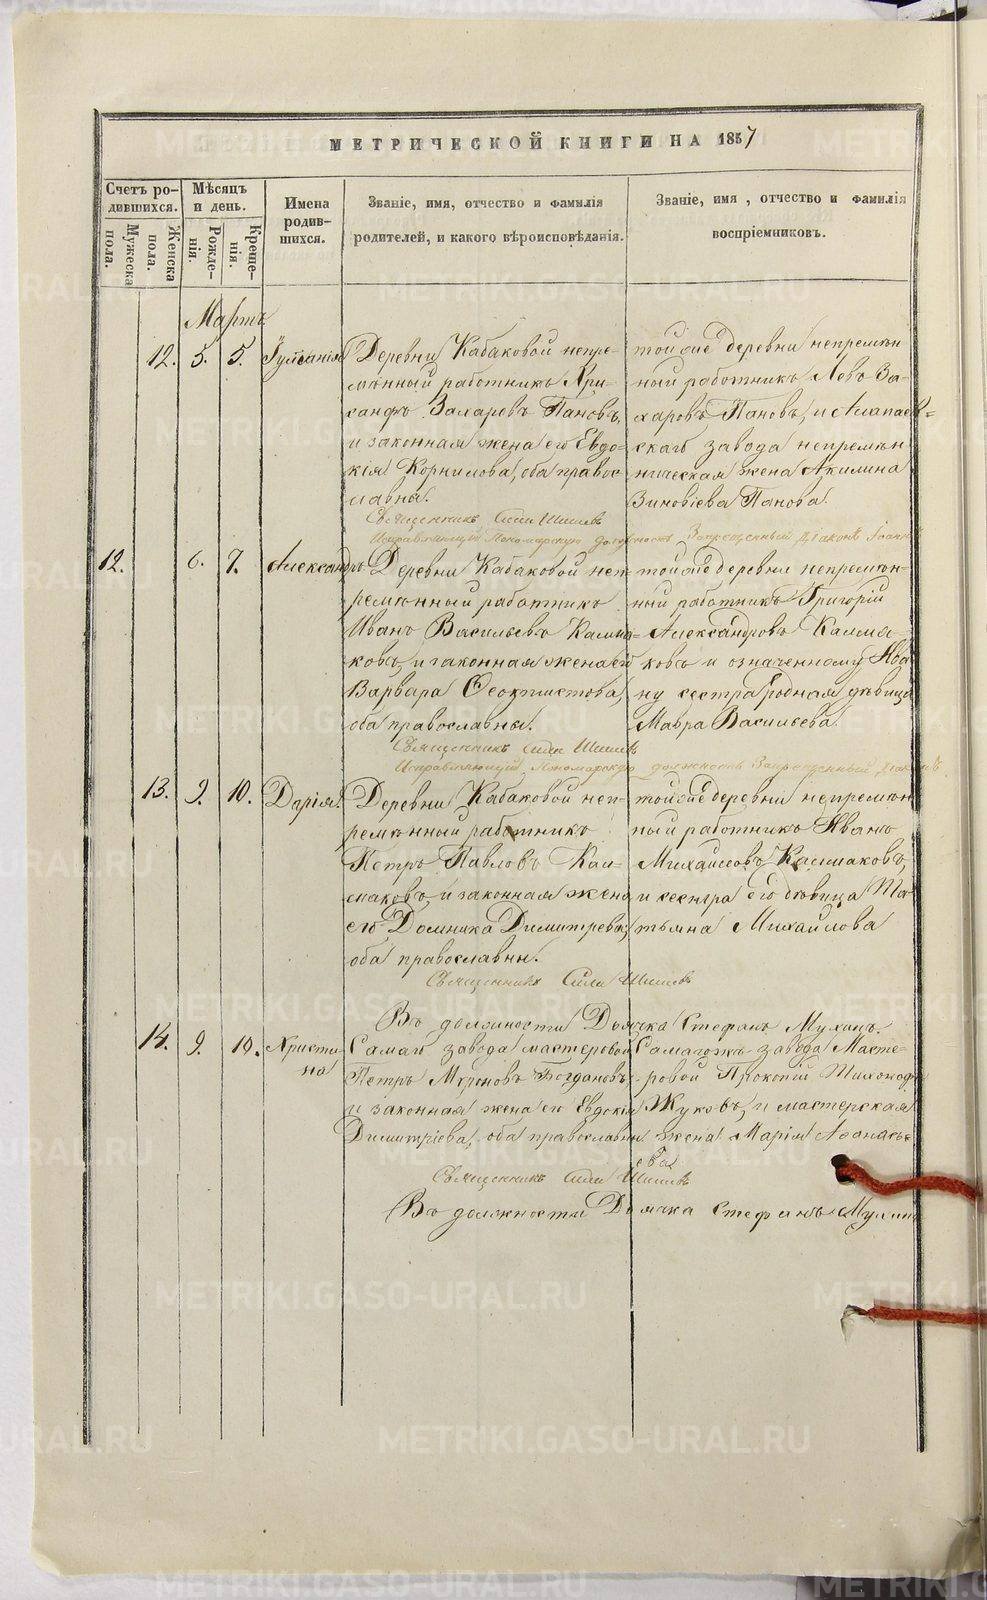 МЕТРИЧЕСКОЙ КНИГИ НА 1857
Счетъ ро-
дившихся.
Мужеска
пола.
Женска
пола.
Мѣсяцъ
и день.
Рожде-
нія.
Креще-
нія.
Имена
родив-
шихся.
Званіе, имя, отчество и фамилія
родителей, и какого вѣроисповѣданія.
Званіе, имя, отчество и фамилія
воспріемниковъ.
Мартъ
12. 5. 5.
Деревни Кабаковой непре-
мѣнный работникъ Хри-
санфъ Захаровъ Пановъ,
и законная жена его Евдо-
кія Корнилова, оба правос-
лавны.
той же деревни непремѣн
ный работникъ Левъ За-
харовъ Пановъ, и Алапаев-
скаго завода непремѣн
ническая жена Акилина
Зиновіева Панова.
Священникъ Сила Шишевъ
Исправляющій Пономарскую должность Запрещенный Діаконъ Іоаннъ
12. 6. 7. Александръ
Деревни Кабаковой неп-
ремѣнный работникъ
Иванъ Васильевъ Калма-
ковъ, и законная жена его
Варвара Феоктистова,
оба православны.
той же деревни непремѣн-
ный работникъ Григорій
Александровъ Калма-
ковъ и означенному Ива
ну сестра родная дѣвица
Мавра Васильева.
Священникъ Сила Шишевъ
Исправляющій Пономарскую должность Запрещенный Діаконъ
13. 9. 10. Дарія.
Деревни Кабаковой неп-
ремѣнный работникъ
Петръ Павловъ Кал-
маковъ, и законная жена
его Домника Димитрева,
оба православны.
той же деревни непремѣн
ный работникъ Иванъ
Михайловъ Калмаковъ,
и сестра его дѣвица Та
тьяна Михайлова
Священникъ Сила Шишевъ
Въ должности Дьячка Стефанъ Мухинъ.
14. 9. 10. Христи-
на
завода мастеровой
Петръ Мироновъ Богдановъ,
и законная жена его Евдокія
Димитріева, оба православны
завода Масте-
ровой Прокопій
Жуковъ, и мастерская
жена Марія Аѳанасье
ева
Священникъ Сила Шишевъ
Въ должности Дьячка Стефанъ Мухинъ
METRIKI.GASO-URAL.RU